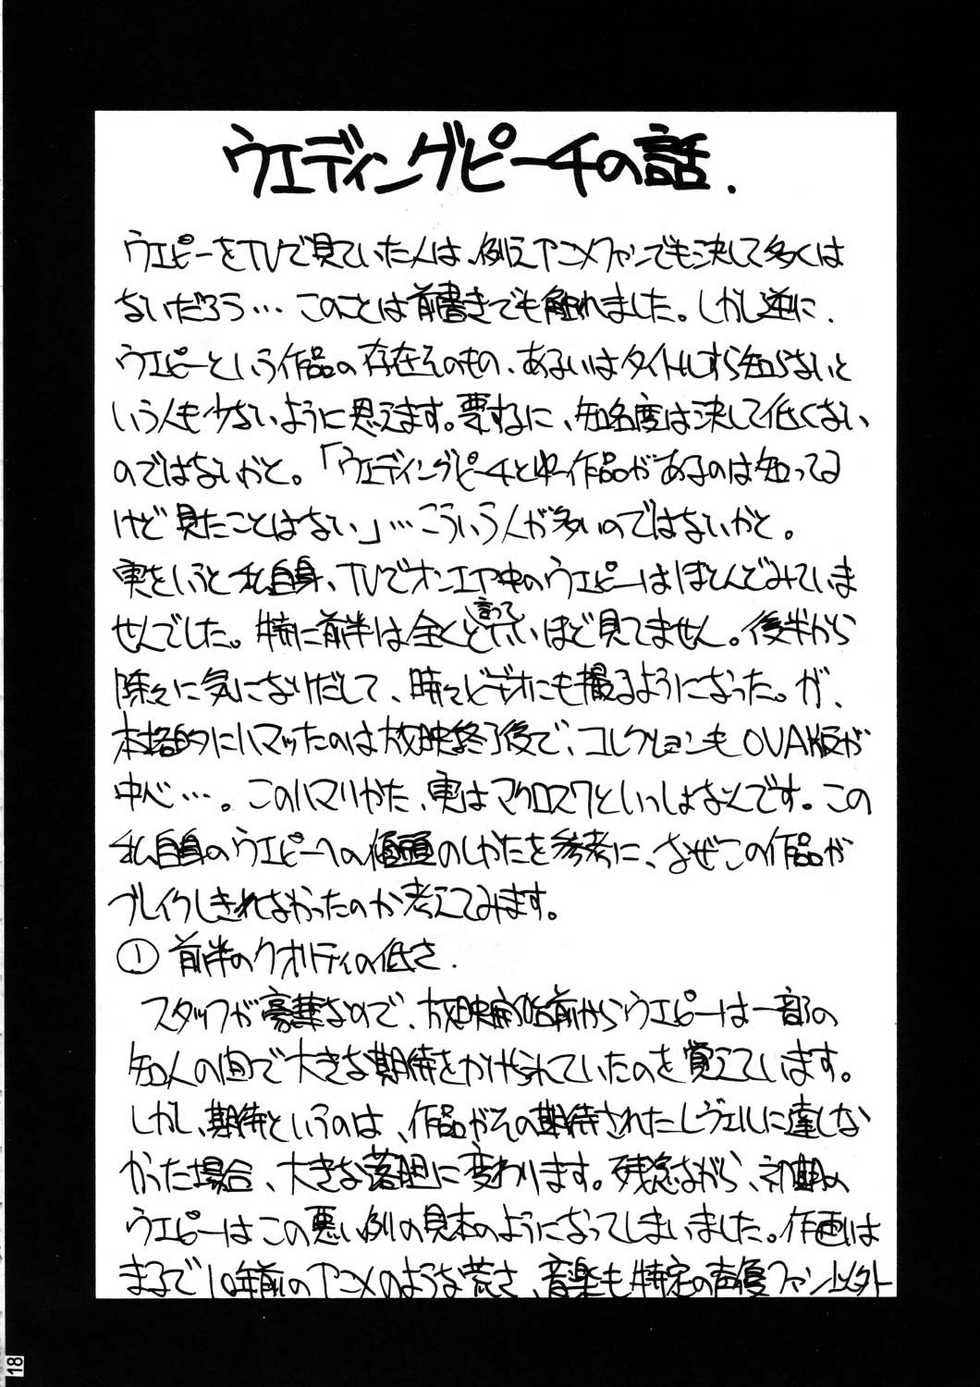 ウエディングピーチの話.
ウエピーをTVで見ていた人は、例えアニメファンでも決して多くは
ないだろう…このことは前書きでも触れました。しかし逆に、
ウエピーという作品の存在そのもの、あるいはタイトルすら知らないと
いう人も少ないように思えます。要するに、知名度は決して低くない
のではないかと。「ウェディングピーチとゆー作品があるのは知ってる
けど見たことはない」…こういう人が多いのではないかと。
実をいうと私自身、TVでオンエア中のウエピーはほとんどみていま
せんでした。特に前半は全くと言っていいほど見てません。後半から
除々に気になりだして、時々ビデオにも撮るようになった。が、
本格的にハマッたのは放映終了後で、コレクションもOVA版が
中心…。このハマりかた、実はマクロス7といっしょなんです。この
私自身のウエピーへの傾頭のしかたを参考に、なぜこの作品が
ブレイクしきれなかったのか考えてみます。
① 前半のクオリティの低さ.
スタッフが豪華なので、放映開始前からウエピーは一部の
知人の間で大きな期待をかけられていたのを覚えています。
しかし、期待というのは、作品がその期待されたレヴェルに達しな
かった場合、大きな落胆に変わります。残念ながら、初期の
ウエピーはこの悪い例の見本のようになってしまいました。作画は
まるで10年前のアニメのような荒さ、音楽も特定の声優ファン以外
18